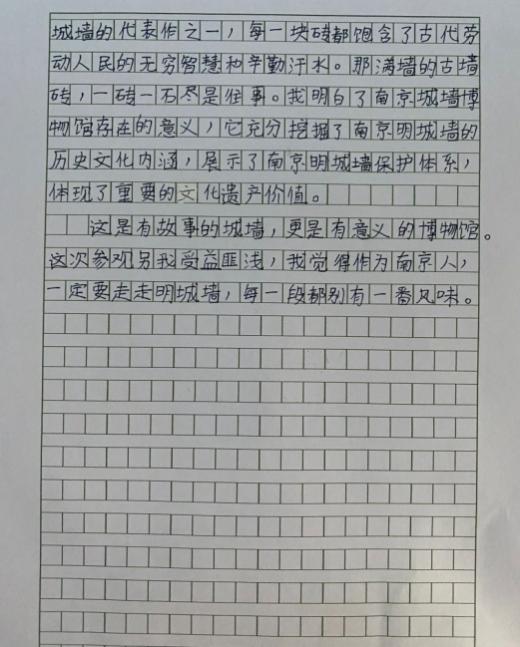 城墙的代表作之一，每一块砖都饱含了古代劳
动人民的无穷智慧和辛勤汗水。那满墙的古墙
砖，一砖一石尽是往事。我明白了南京城墙博
物馆存在的意义，它充分挖掘了南京明城墙的
历史文化内涵，展示了南京明城墙保护体系，
体现了重要的文化遗产价值。
这是有故事的城墙，更是有意义的博物馆。
这次参观另我受益匪浅，我觉得作为南京人，
一定要走走明城墙，每一段都别有一番风味。